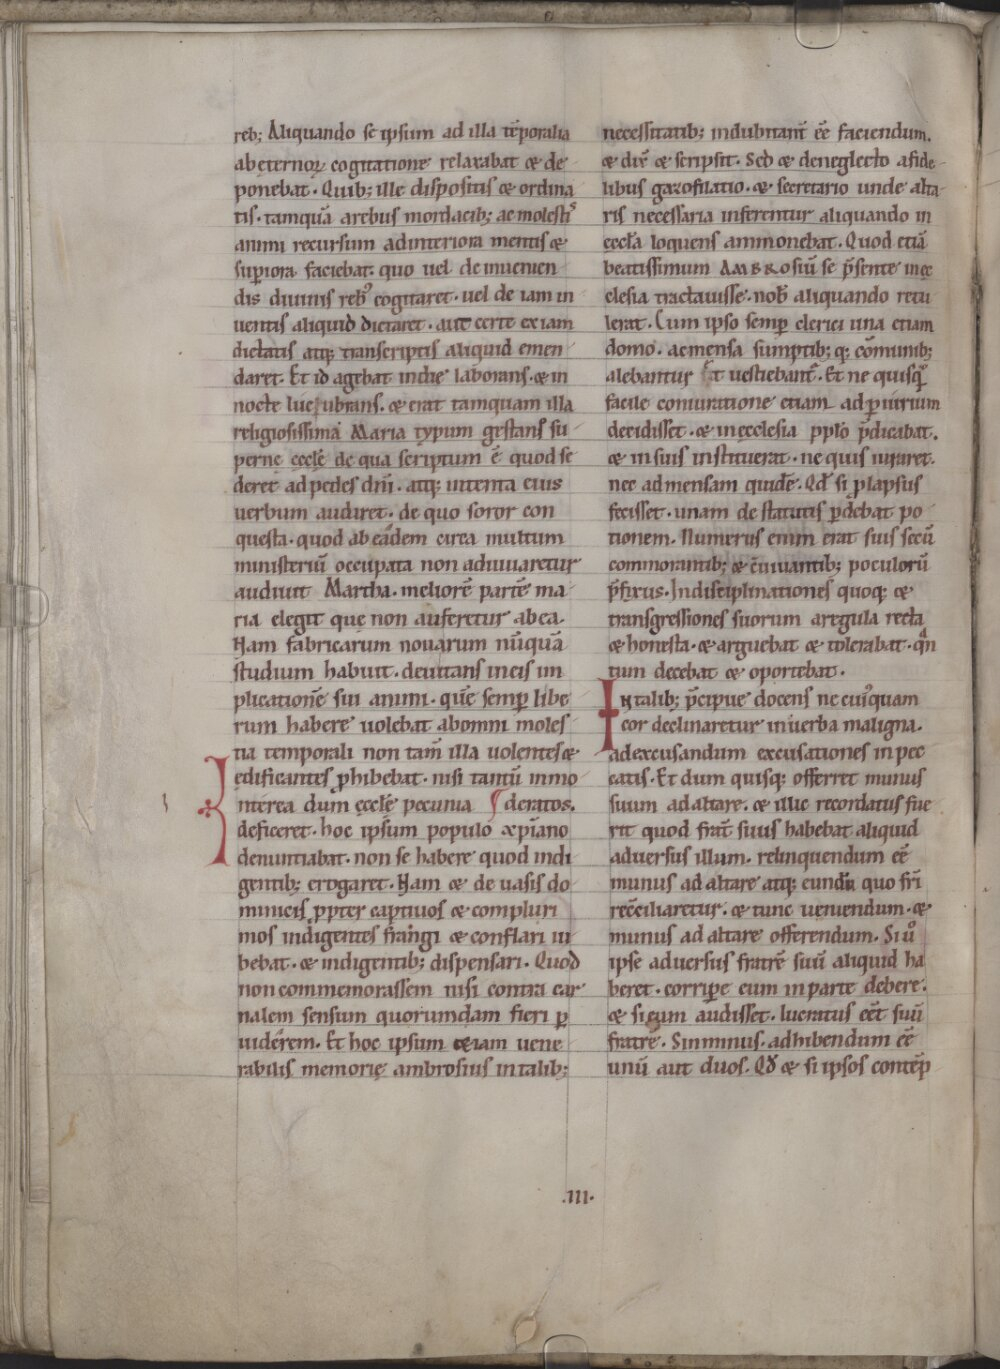 reb; Aliquando se ipsum ad illa tēporalia
ab eternoꝝ cogitatione relaxabat & de
ponebat. Quib; ille dispositis & ordina
tis. tamquā a rebus mordacib; ac molestis
animi recursum ad interiora mentis &
superiora faciebat. quo uel de inuenien
dis diuinis reb; cogitaret. uel de iam in
uentis aliquid dictaret. aut certe ex iam
dictatis atq; transcriptis aliquid emen
daret. Et id agebat in die laborans. & in
nocte lucubrans. & erat tamquam illa
religiosissima Maria typum gestans su
perne ęcclę de qua scriptum ē quod se
deret ad pedes dn̄i. atq; intenta eius
uerbum audiret. de quo soror con
questa. quod ab eādem circa multum
ministeriū occupata non adiuuaretur
audiuit Martha. meliorē partē ma
ria elegit que non auferetur ab ea.
Nam fabricarum nouarum nūquā
studium habuit. deuitans in eis im
plicationē sui animi. quē semꝑ libe
rum habere uolebat ab omni moles
tia temporali non tam̄ illa uolentes &
edificantes ꝓhibebat. nisi tantū inmo
Interea dum ęcclę pecunia deratos.
deficeret. hoc ipsum populo xp̄iano
denuntiabat. non se habere quod indi
gentib; erogaret. Nam & de uasis do
minicis ꝓpter captiuos & compluri
mos indigentes frangi & conflari iu
bebat. & indigentib; dispensari. Quod
non commemorassem nisi contra car
nalem sensum quorumdam fieri ꝑ
uiderem. Et hoc ipsum etiam uene
rabilis memorię ambrosius in talib;
necessitatib; indubitant̄ eē faciendum.
& dix̄ & scripsit. Sed & de neglecto a fide
libus gazofilatio. & secretario unde alta
ris necessaria inferentur aliquando in
eccl̄a loquens ammonebat. Quod etiā
beatissimum AMBROsiū se p̄sente in ec
clesia tractauisse. nob̄ aliquando retu
lerat. Cum ipso semꝑ clerici una etiam
domo. ac mensa sumptib; q; cōmunib;
alebantur & uestiebant̄. Et ne quisq̊
facile coniuratione etiam ad ꝑiurium
decidisset. & in ecclesia ppl̄o p̄dicabat.
& in suis instituerat. ne quis iuraret.
nec ad mensam quidē. Qd̄ si ꝓlapsus
fecisset. unam de statutis ꝑdebat po
tionem. Numerus enim erat suis secū
commorantib; & c̄uiuantib; poculorū
p̄fixus. Indisciplinationes quoq; &
transgressiones suorum a regula recta
& honesta. & arguebat & tolerabat. qn̄
tum decebat & oportebat.
In talib; p̄cipue docens ne cuiusquam
cor declinaretur in uerba maligna.
ad excusandum excusationes in pec
catis. Et dum quisq; offerret munus
suum ad altare. & illic recordatus fue
rit quod frat̄ suus habebat aliquid
aduersus illum. relinquendum eē
munus ad altare atq; eundū quo fr̄i
recc̄iliaretur. & tunc ueniendum. &
munus ad altare offerendum. Si ů
ipse aduersus fratrē suū aliquid ha
beret. corriꝑe eum in parte debere.
& si eum audisset. lucratus eēt suū
fratrē. Sin minus. adhibendum eē
unū aut duos. Qd̄ & si ipsos contēp
.III.